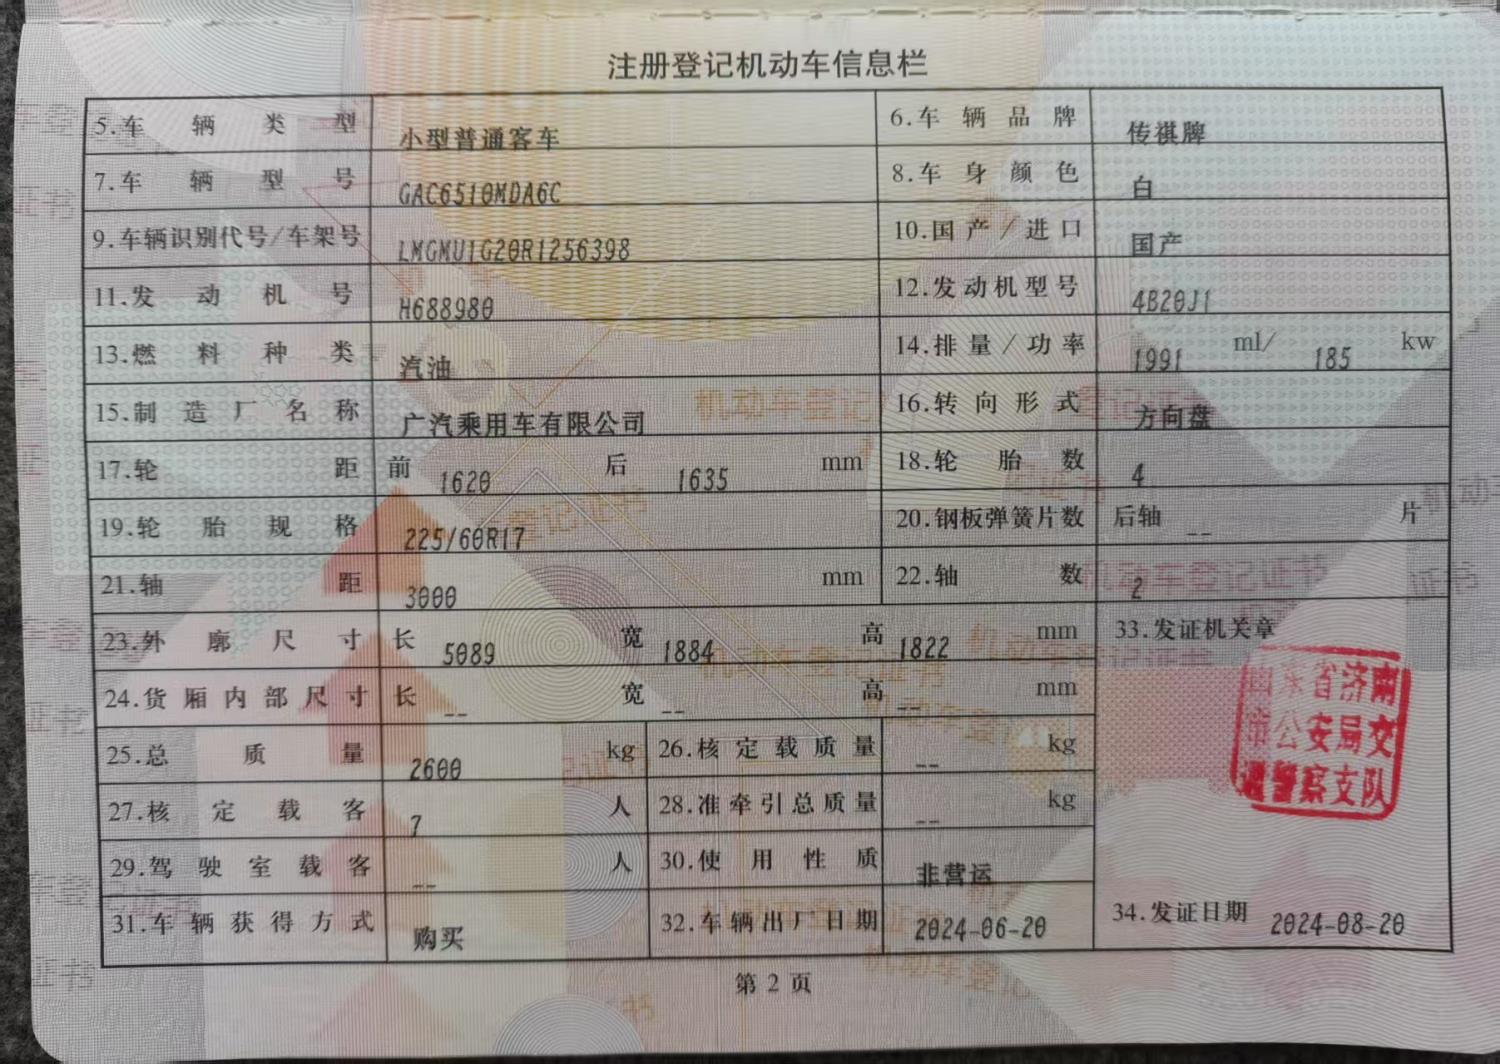 注册登记机动车信息栏
5.车辆类型 小型普通客车 6.车辆品牌 传祺牌
7.车辆型号 GAC6510MDA6C 8.车身颜色 白
9.车辆识别代号/车架号 LMGMU1G20R1256398 10.国产/进口 国产
11.发动机号 H688980 12.发动机型号 4B20J1
13.燃料种类 汽油 14.排量/功率 1991 ml/ 185 kw
15.制造厂名称 广汽乘用车有限公司 16.转向形式 方向盘
17.轮距 前 1620 后 1635 mm 18.轮胎数 4
19.轮胎规格 225/60R17 20.钢板弹簧片数 后轴 -- 片
21.轴距 3000 mm 22.轴数 2
23.外廓尺寸 长 5089 宽 1884 高 1822 mm 33.发证机关章
24.货厢内部尺寸 长 -- 宽 -- 高 -- mm
山东省济南
市公安局交
通警察支队
25.总质量 2600 kg 26.核定载质量 -- kg
27.核定载客 7 人 28.准牵引总质量 -- kg
29.驾驶室载客 -- 人 30.使用性质 非营运
31.车辆获得方式 购买 32.车辆出厂日期 2024-06-20 34.发证日期 2024-08-20
第2页